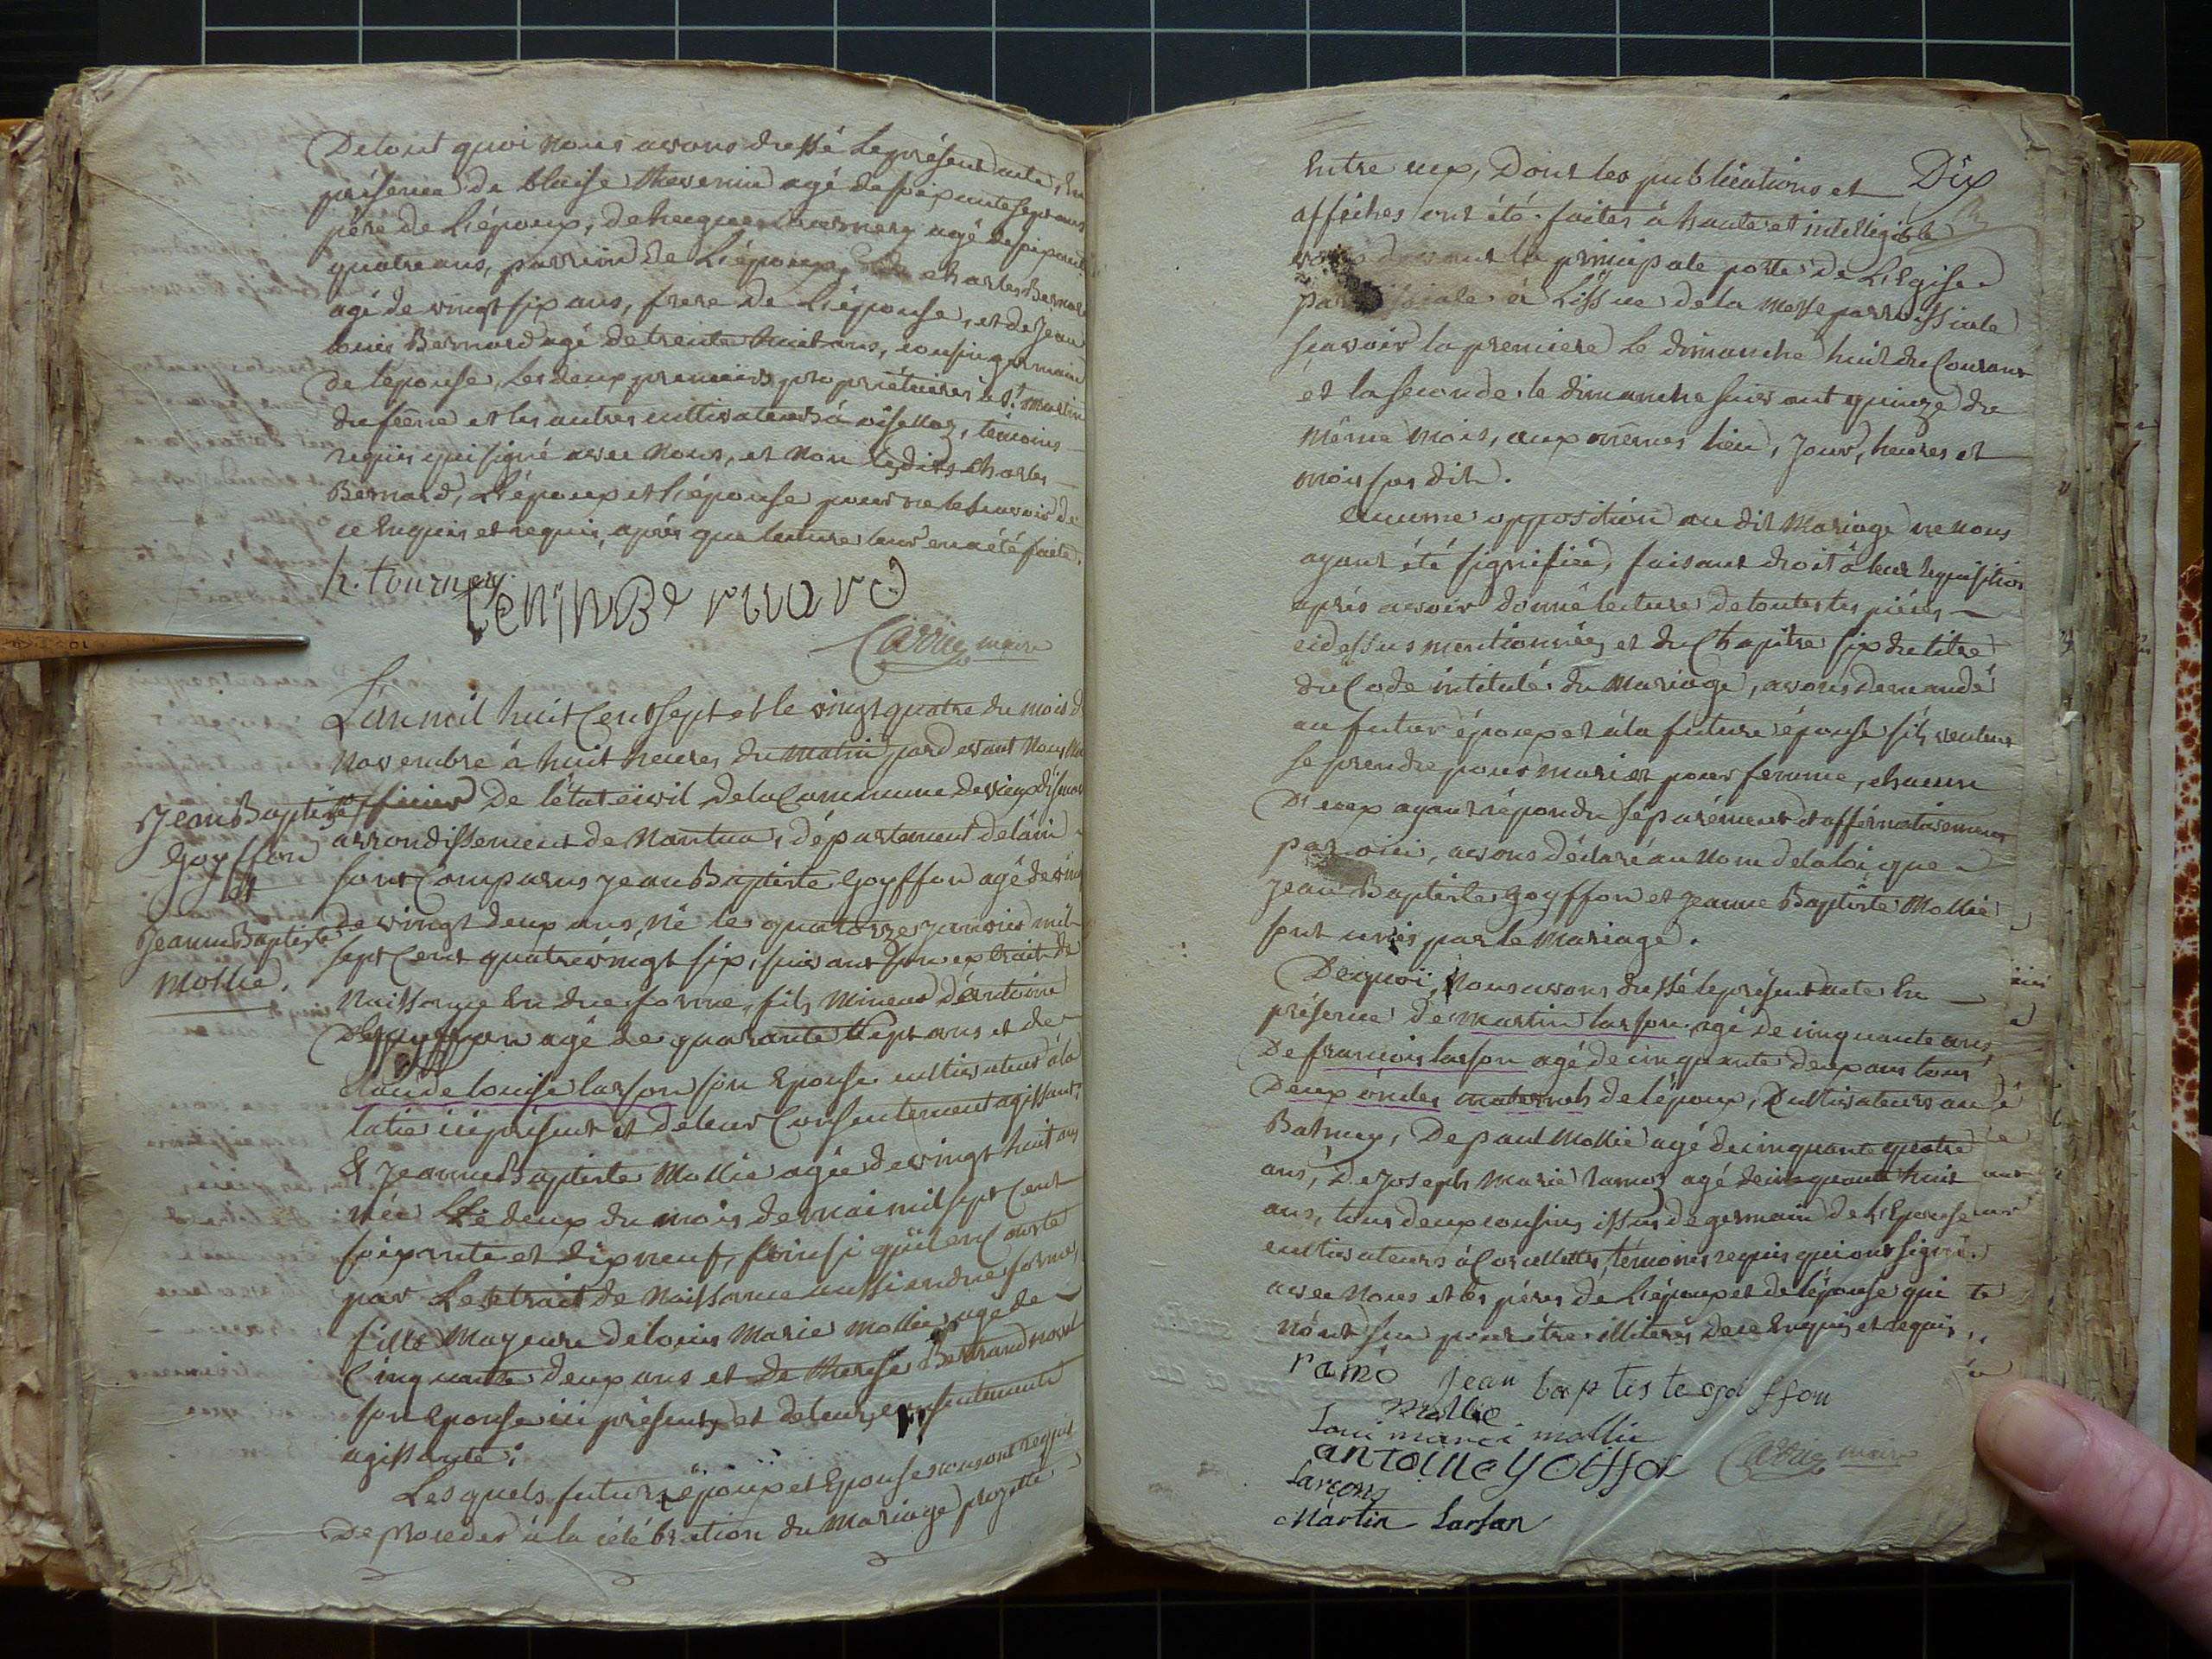 De tout quoi nous avons dressé le présent acte, En
présence de blaise thevenin agé de soixante sept ans
père de l'époux, de hugue tournery agé de soixante
quatre ans, parrain de l'époux, de charles Bernard
agé de vingt six ans, frere de l'épouse, et de Jean
louis Bernard agé de trente huit ans, cousin germain
de l'épouse, les deux premiers propriétaires à St. martin
du frene et les autres cultivateurs à oisellaz, témoins
requis qui signé avec Nous, et Non lesdits charles
Bernard, L'époux et l'épouse pour ne le savoir de
ce Enquis et requis, après que lecture leur en a été faite.
h. tournery
Bernard
maire
L'an mil huit Cent sept et le vingt quatre du mois de
Novembre à huit heures du matin pardevant Nous
officier De l'état civil de la Commune de vieux d'isenave
arrondissement de Nantua, département de l'ain
sont Comparus Jean Baptiste Goyffon agé de vingt
de vingt deux ans, né le quatorze janvier mil
sept Cent quatre vingt six, suivant son extrait de
Naissance En due forme, fils Mineur d'antoine
Goyffon agé de quarante sept ans et de
claude louise larson son Epouse cultivateur à la
latie ici présent et de leur Consentement agissant;
Et Jeanne Baptiste Mollie agée de vingt huit ans
née Le deux du mois de mai mil sept Cent
soixante et dix neuf, ainsi qu'il en Conste
par L'extrait de Naissance aussi en due forme,
fille Mayeure de louis Marie Mollie agé de
Cinquante deux ans et de therese Bertrand
son Epouse ici présents, et de leur consentement
agissante;
Lesquels futurs époux et Epouse nous ont requis
De proceder à la célébration du Mariage projetté
Jean Baptiste
Goyffon
et
Jeanne Baptiste
Mollie.
Dix
Entre eux, Dont les publications et
affiches ont été faites à haute et intelligible
devant la principale porte de L'Eglise
à L'issue de la Messe parroissiale
sçavoir la premiere le dimanche huit du Courant
et la seconde le dimanche suivant quinze du
Même Mois, aux mêmes lieu, Jour, heures et
mois sus dit.
aucune opposition au dit Mariage ne nous
ayant été signifiée, faisant droit à leur requisition
après avoir donné lecture de toutes les pièces
cidessus mentionnées et du Chapitre six du titre
du Code intitulé du Mariage, avons demandé
au futur époux et à la future épouse s'ils veulent
se prendre pour mari et pour femme, chacun
D'eux ayant répondu séparément et affirmativement
par oui, avons déclaré au Nom de la loi que
Jean Baptiste Goyffon et Jeanne Baptiste Mollie
sont unis par le Mariage.
De quoi, Nous avons dressé le présent acte En
présence de martin larson agé de cinquante ans,
De francois larson agé de cinquante deux ans tous
Deux oncles maternels de l'époux, Cultivateurs au
Balmey, De paul Mollie agé de cinquante quatre
ans, De Joseph Marie ramoz agé de cinquante huit
ans, tous deux cousins issus de germain de l'Epouse
cultivateurs à Corcelles, témoins requis qui ont signé
avec Nous et les pères de l'époux et de l'épouse qui
n'ont su pour être illiterés de ce Enquis et requis,
ramo Jean baptiste gaiffon
mollie
Loui marie mollie
antoine yoiffon maire
Larçon
Martin Larson